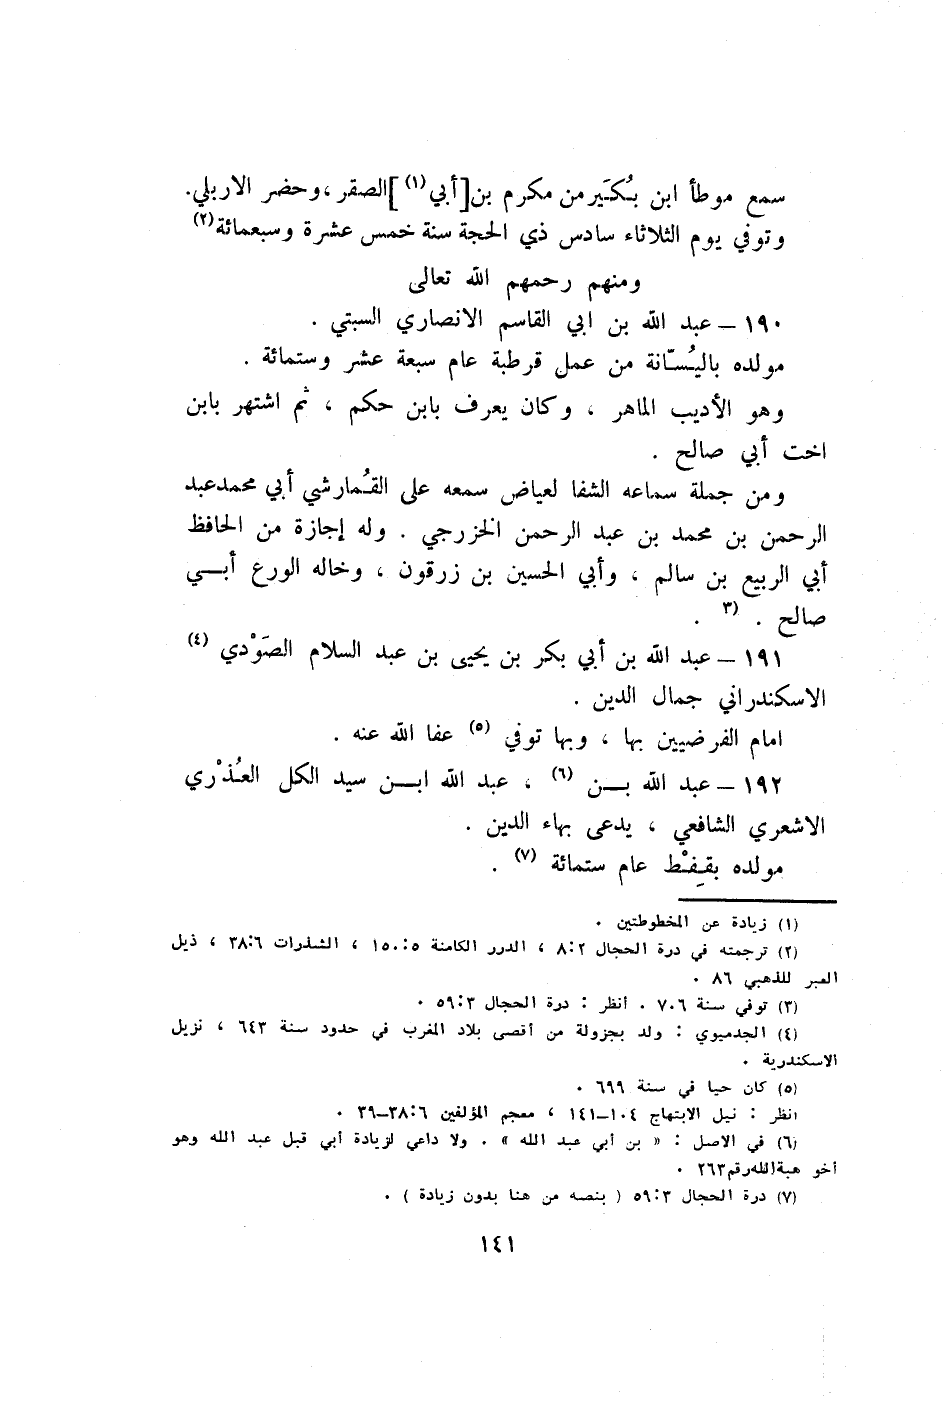 سمع موطأ ابن بُكَيْر من مكرم بن [أبي (١)] الصقر ، وحضر الاربلي.
وتوفي يوم الثلاثاء سادس ذي الحجة سنة خمس عشرة وسبعمائة (٢)
ومنهم رحمهم الله تعالى
١٩٠ ــ عبد الله بن ابي القاسم الانصاري السبتي .
مولده باليُسّانة من عمل قرطبة عام سبعة عشر وستمائة .
وهو الأديب الماهر ، وكان يعرف بابن حكم ، ثم اشتهر بابن
اخت أبي صالح .
ومن جملة سماعه الشفا لعياض سمعه على القُمارشي أبي محمد عبد
الرحمن بن محمد بن عبد الرحمن الخزرجي . وله إجازة من الحافظ
أبي الربيع بن سالم ، وأبي الحسين بن زرقون ، وخاله الورع أبــي
صالح . (٣ .
١٩١ ــ عبد الله بن أبي بكر بن يحيى بن عبد السلام الصَوْدي (٤)
الاسكندراني جمال الدين .
امام الفرضيين بها ، وبها توفي (٥) عفا الله عنه .
١٩٢ ــ عبد الله بــن (٦) ، عبد الله ابــن سيد الكل العُذْري
الاشعري الشافعي ، يدعى بهاء الدين .
مولده بقِفْط عام ستمائة (٧) .
(١) زيادة عن المخطوطتين .
(٢) ترجمته في درة الحجال ٨:٢ ، الدرر الكامنة ١٥٠:٥ ، الشذرات ٣٨:٦ ، ذيل
العبر للذهبي ٨٦ .
(٣) توفي سنة ٧٠٦ . أنظر : درة الحجال ٥٩:٣ .
(٤) الجدميوي : ولد بجزولة من أقصى بلاد المغرب في حدود سنة ٦٤٣ ، نزيل
الاسكندرية .
(٥) كان حيا في سنة ٦٩٩ .
انظر : نيل الابتهاج ١٠٤ــ١٤١ ، معجم المؤلفين ٣٨:٦ــ٣٩ .
(٦) في الاصل : « بن أبي عبد الله » . ولا داعي لزيادة أبي قبل عبد الله وهو
أخو هبة الله رقم ٢٦٣ .
(٧) درة الحجال ٥٩:٣ ( بنصه من هنا بدون زيادة ) .
١٤١